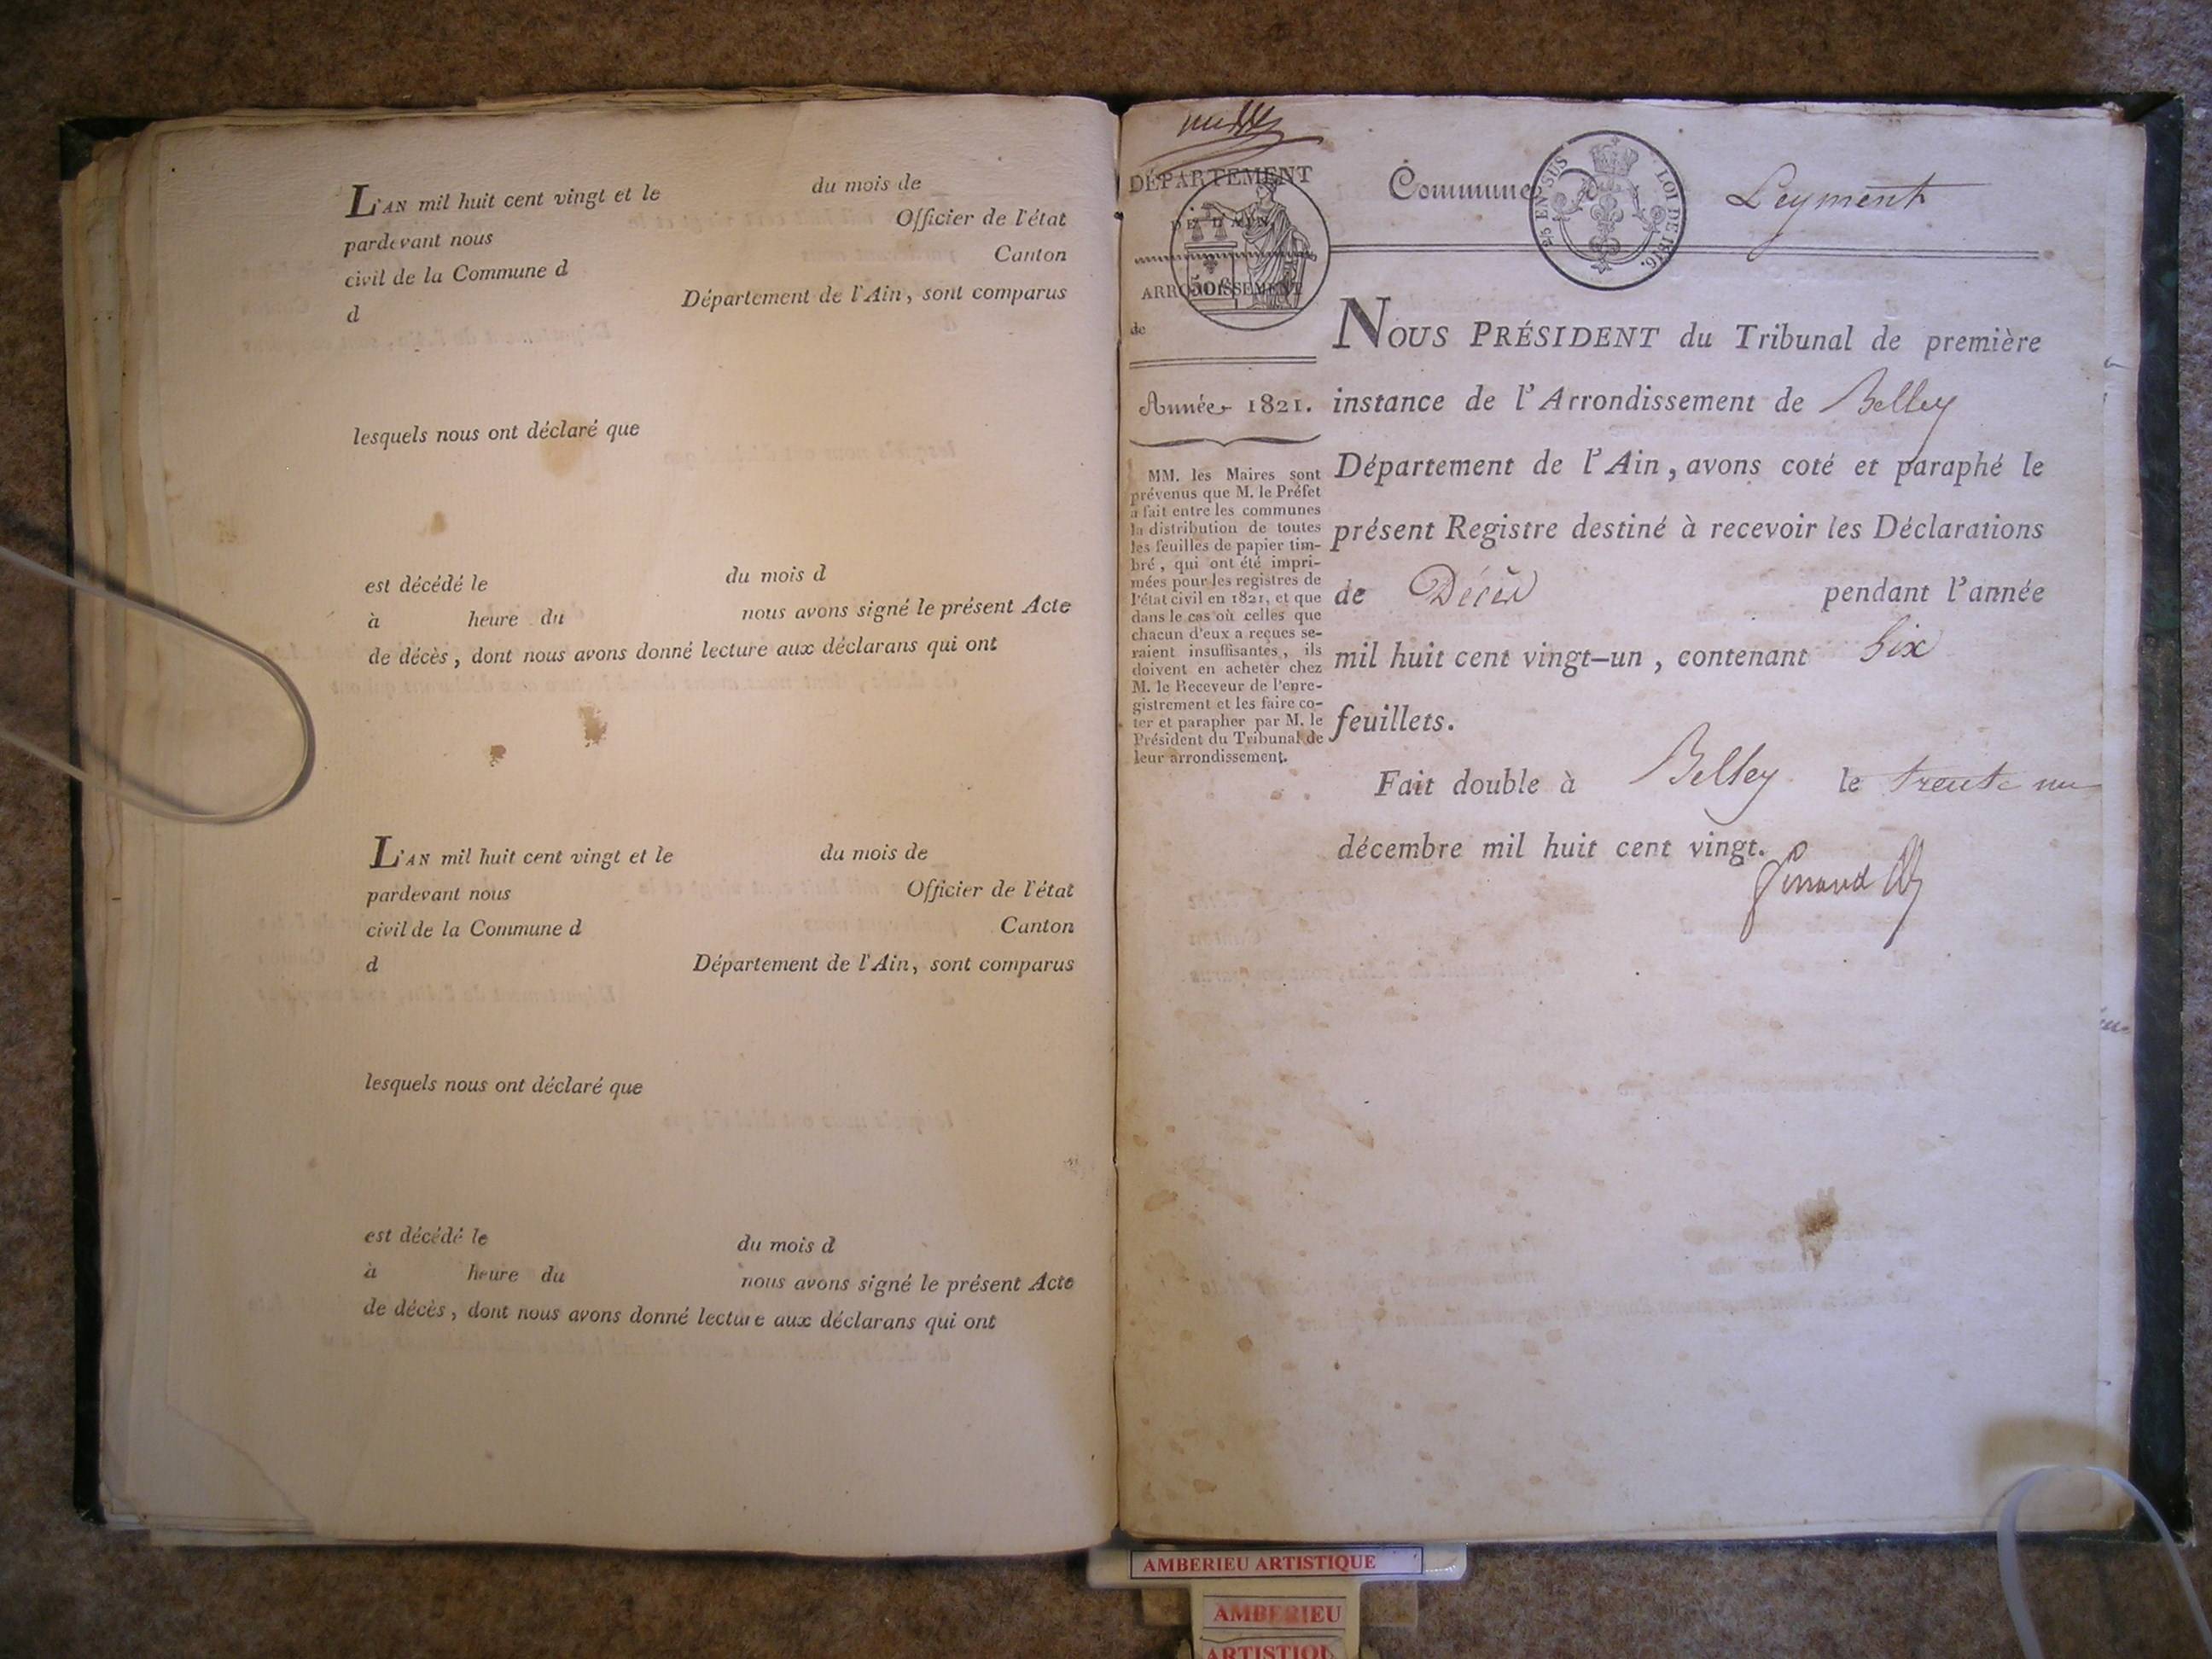 L'AN mil huit cent vingt et le du mois de
pardevant nous Officier de l'état
civil de la Commune d Canton
d Département de l'Ain, sont comparus
lesquels nous ont déclaré que
est décédé le du mois d
à heure du nous avons signé le présent Acte
de décès, dont nous avons donné lecture aux déclarans qui ont
L'AN mil huit cent vingt et le du mois de
pardevant nous Officier de l'état
civil de la Commune d Canton
d Département de l'Ain, sont comparus
lesquels nous ont déclaré que
est décédé le du mois d
à heure du nous avons signé le présent Acte
de décès, dont nous avons donné lecture aux déclarans qui ont
DÉPARTEMENT
DE L'AIN.
ARRONDISSEMENT
de
50 c
Année 1821.
MM. les Maires sont
prévenus que M. le Préfet
a fait entre les communes
la distribution de toutes
les feuilles de papier tim-
bré, qui ont été impri-
mées pour les registres de
l'état civil en 1821, et que
dans le cas où celles que
chacun d'eux a reçues se-
raient insuffisantes, ils
doivent en acheter chez
M. le Receveur de l'enre-
gistrement et les faire co-
ter et parapher par M. le
Président du Tribunal de
leur arrondissement.
Commune Leyment
EN SUS LOI DE 1816.
NOUS PRÉSIDENT du Tribunal de première
instance de l'Arrondissement de Belley
Département de l'Ain, avons coté et paraphé le
présent Registre destiné à recevoir les Déclarations
de Décès pendant l'année
mil huit cent vingt-un, contenant Six
feuillets.
Fait double à Belley le trente un
décembre mil huit cent vingt.
AMBERIEU ARTISTIQUE
AMBERIEU
ARTISTIQU